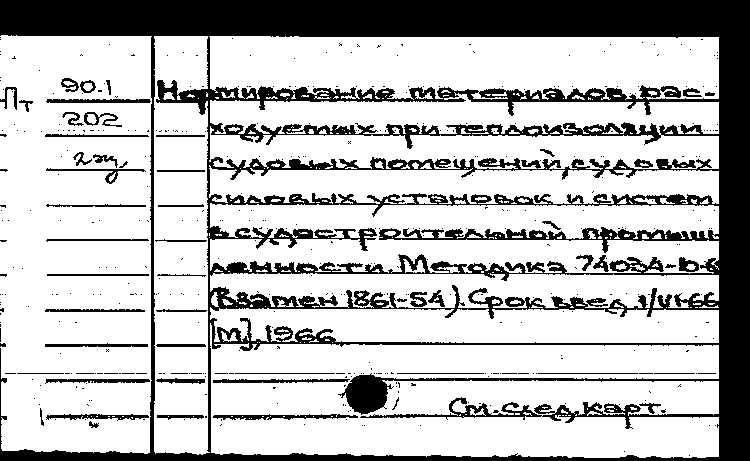 Пт 90.1
202
2 эк,
Нормирование материалов, рас-
ходуемых при теплоизоляции
судовых помещений, судовых
силовых установок и систем
в судостроительной промыш-
ленности. Методика 74034-10-6
(Взамен 1861-54). Срок введ. 1/VI-66
[М], 1966
См. след. карт.